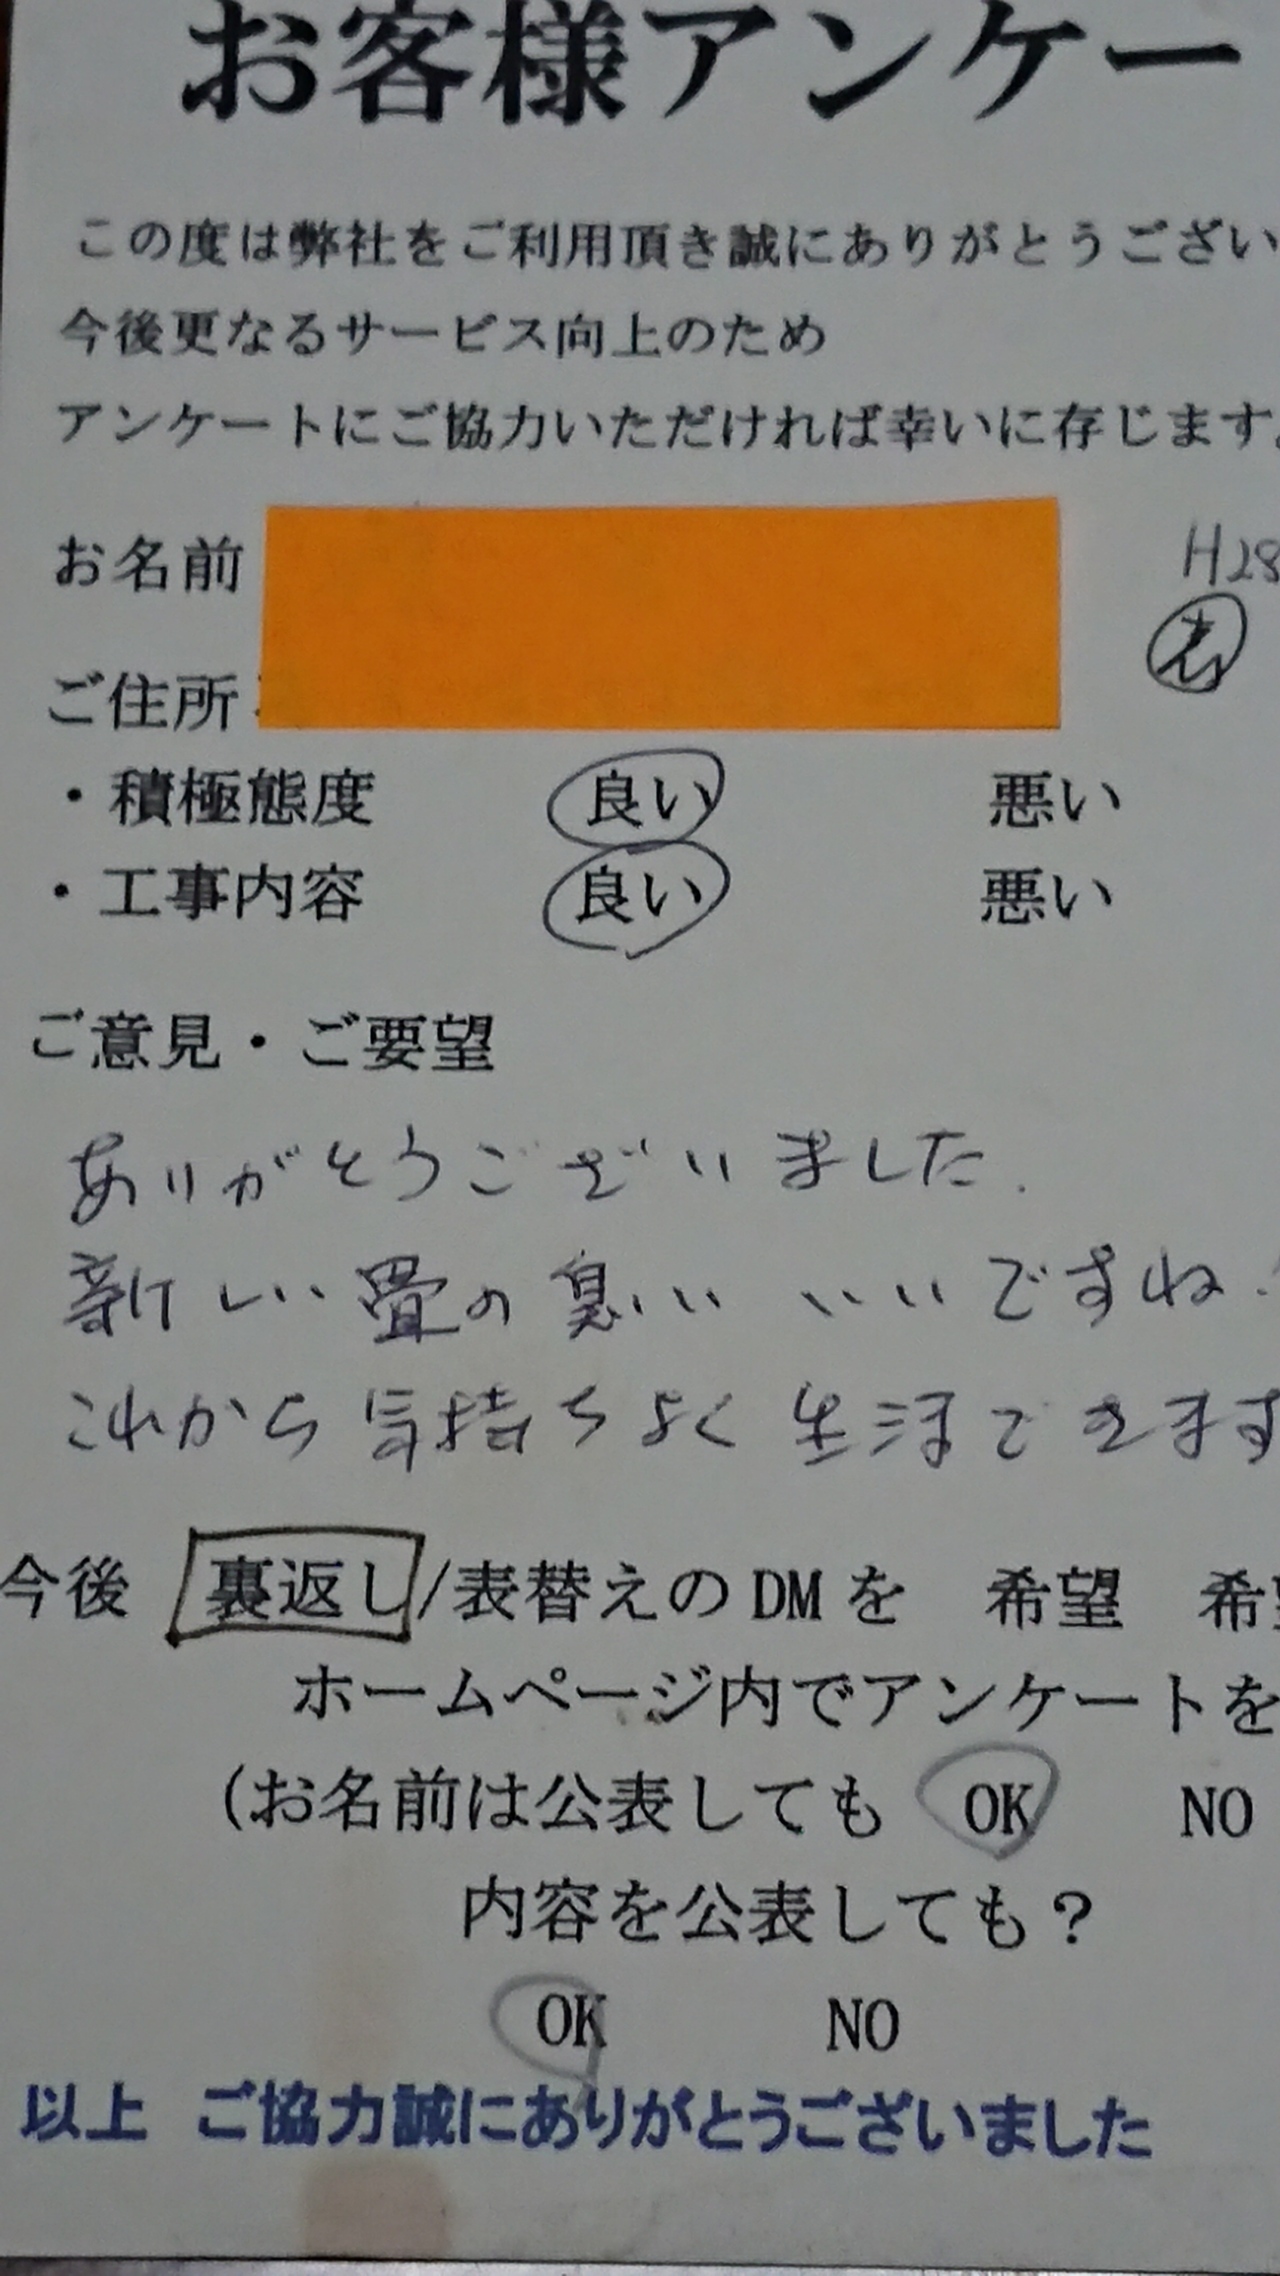 お客様アンケー
この度は弊社をご利用頂き誠にありがとうござい
今後更なるサービス向上のため
アンケートにご協力いただければ幸いに存じます。
お名前
H28
ご住所
・積極態度 良い 悪い
・工事内容 良い 悪い
ご意見・ご要望
ありがとうございました.
新しい畳の臭い いいですね
これから気持ちよく生活できます
今後 裏返し/表替えのDMを 希望 希
ホームページ内でアンケートを
(お名前は公表しても OK NO
内容を公表しても？
OK NO
以上 ご協力誠にありがとうございました